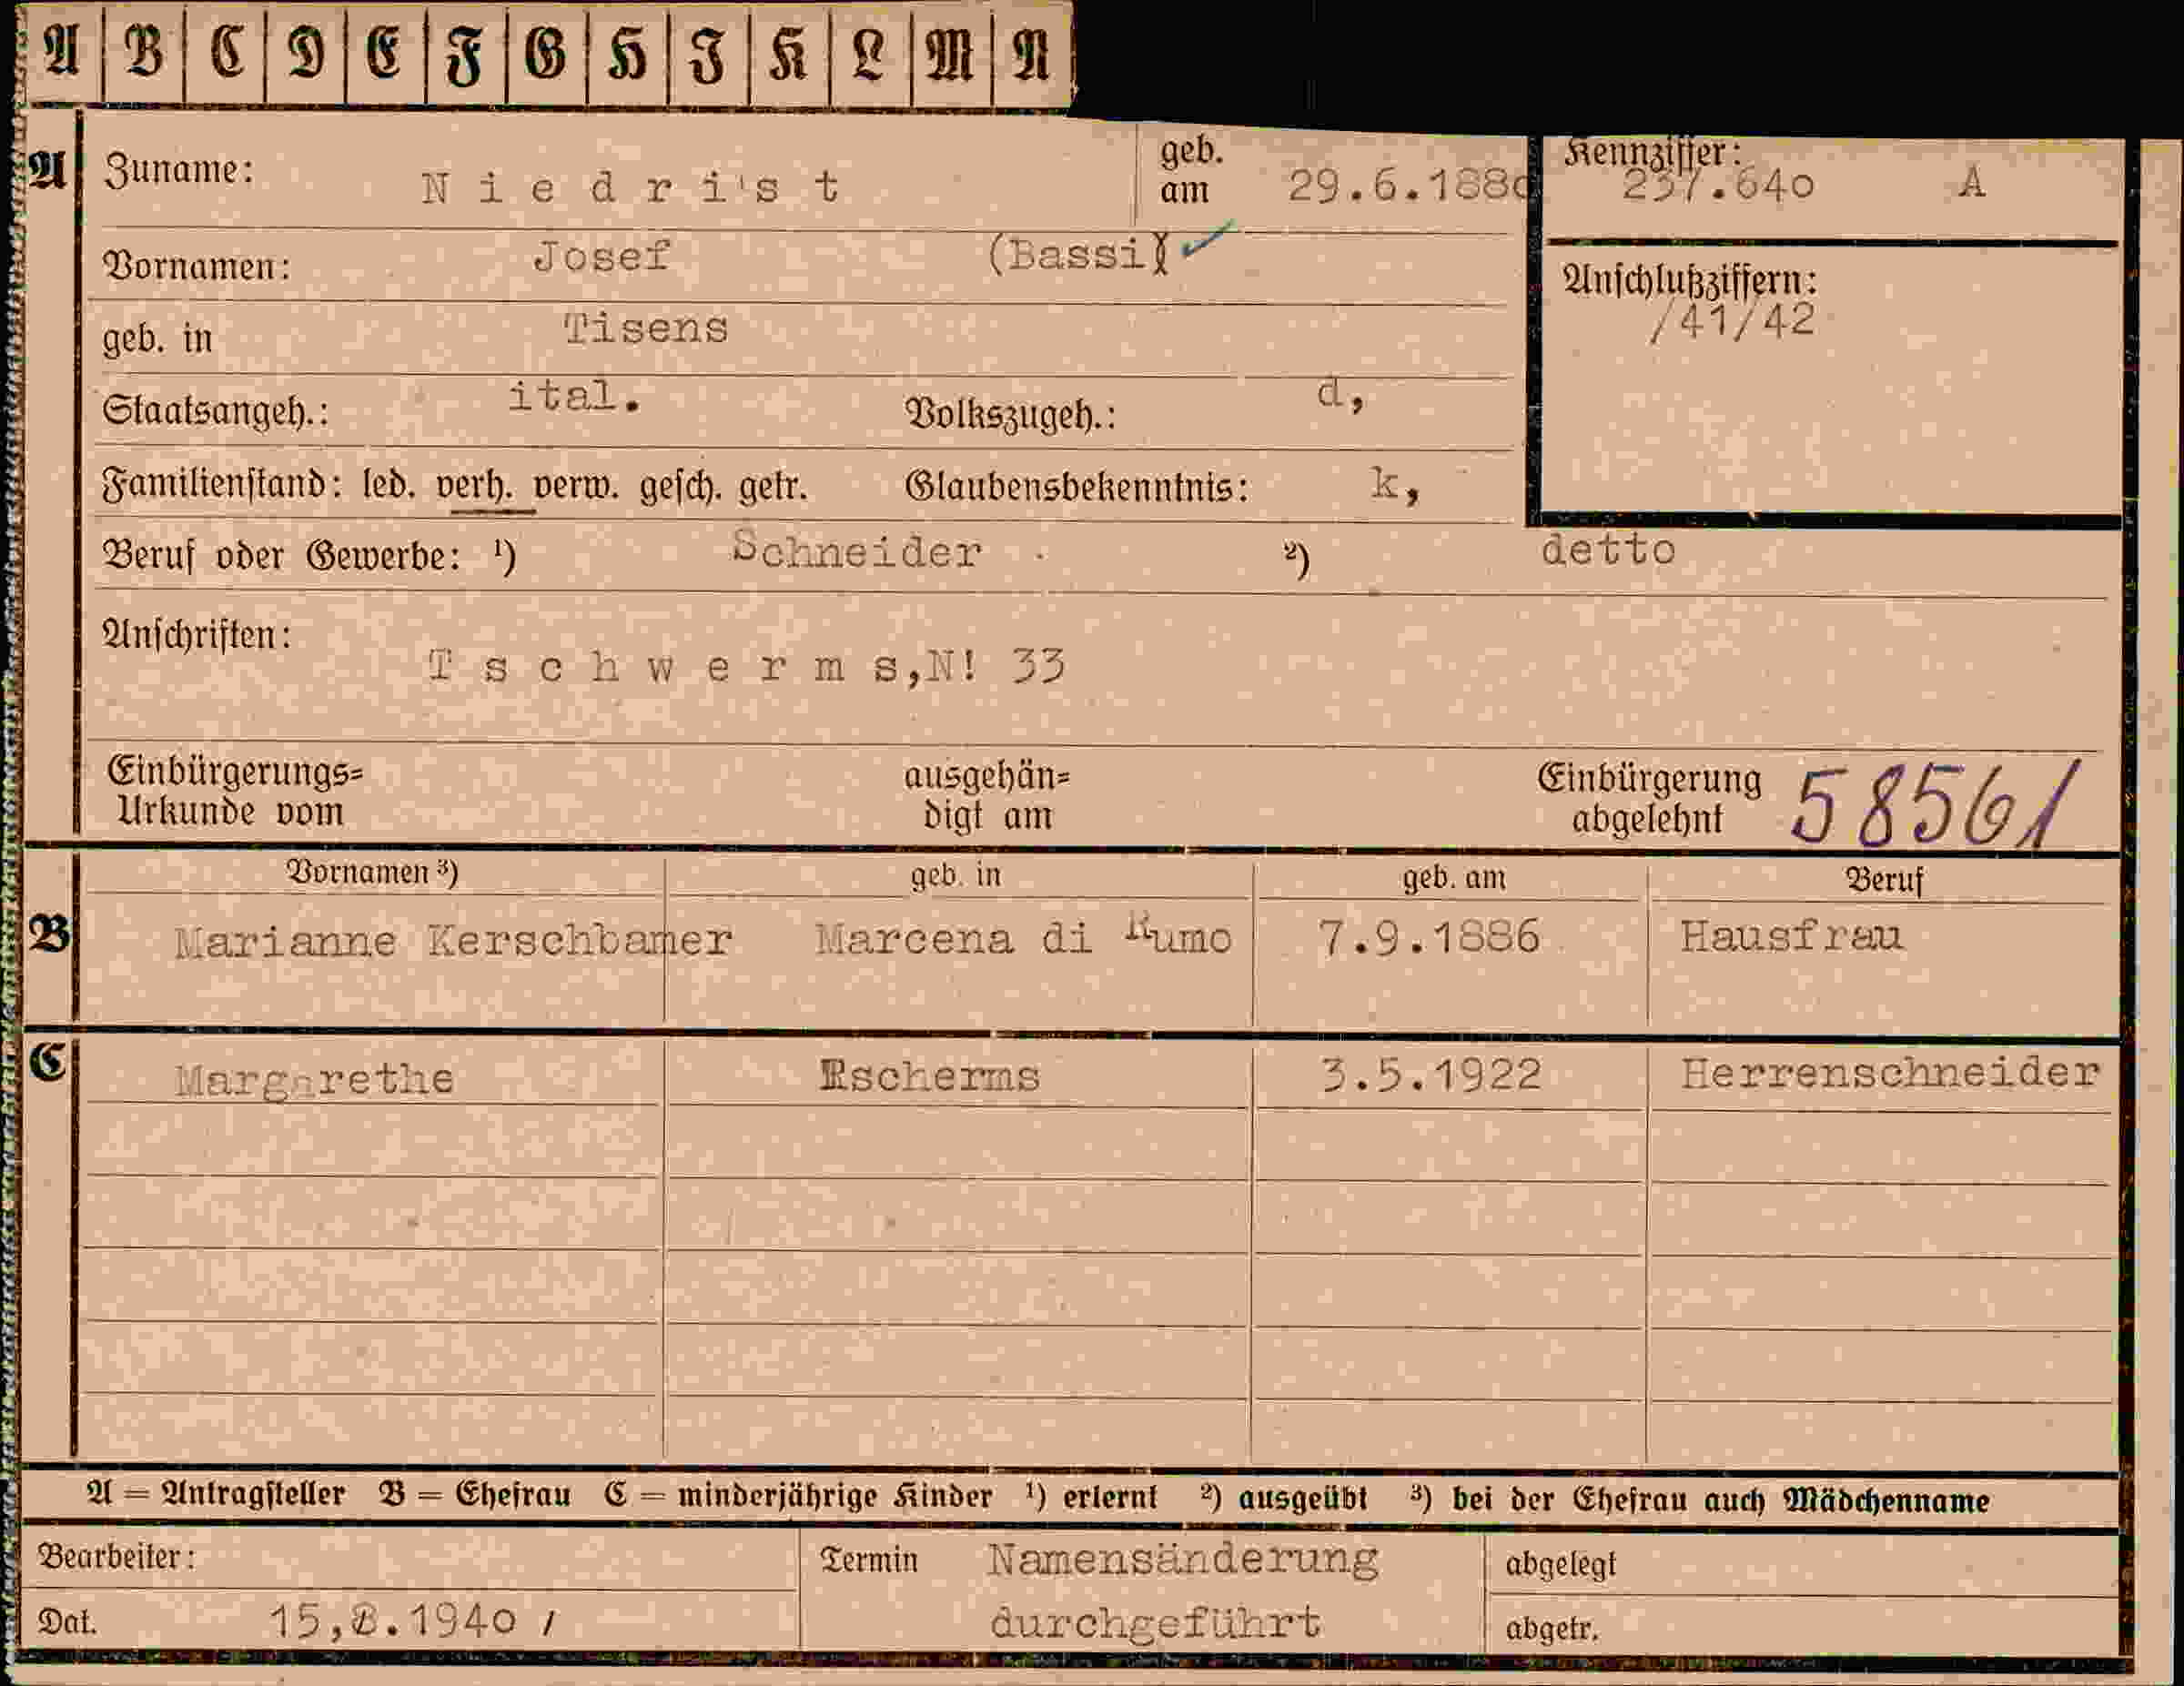 A B C D E F G H I K L M N
A Zuname: Niedrist geb. am 29.6.1880 Kennziffer: 237.640 A
Vornamen: Josef (Bassi)
Anschlußziffern: /41/42
geb. in Tisens
Staatsangeh.: ital. Volkszugeh.: d,
Familienstand: led. verh. verw. gesch. getr. Glaubensbekenntnis: k,
Beruf oder Gewerbe: ¹) Schneider ²) detto
Anschriften: Tschwerms, N! 33
Einbürgerungs= ausgehän= Einbürgerung 58561
Urkunde vom digt am abgelehnt
Vornamen ³) geb. in geb. am Beruf
B Marianne Kerschbamer Marcena di Rumo 7.9.1886 Hausfrau
C Margarethe Escherms 3.5.1922 Herrenschneider
A = Antragsteller B = Ehefrau C = minderjährige Kinder ¹) erlernt ²) ausgeübt ³) bei der Ehefrau auch Mädchenname
Bearbeiter: Termin Namensänderung abgelegt
Dat. 15,8.1940 / durchgeführt abgetr.